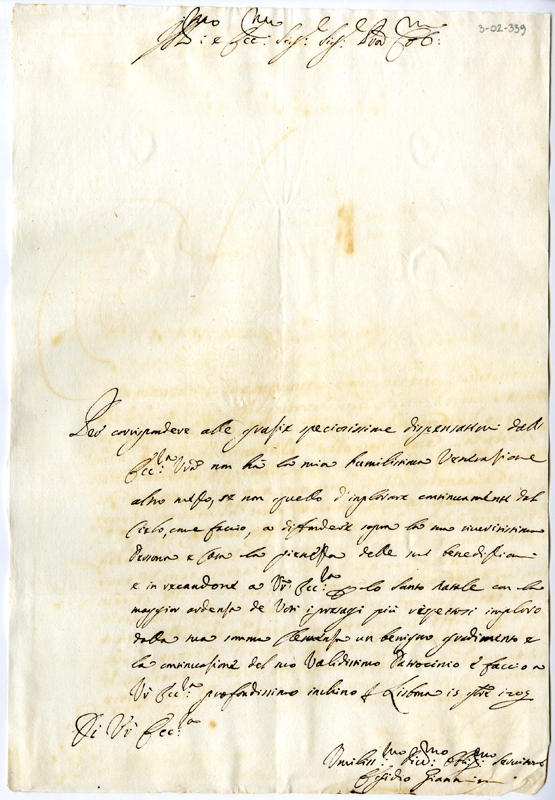 3-02-339
Ill:mo e Ecc:mo Sig:r Sig:r Pron Col:mo
Per corrispondere alle grazie speciosissime dispensatemi dall'
Ecc:za Vra non ha la mia humilissima Venerazione
altro mezzo, se non quello d'implorare continuamente dal
Cielo, come faccio, a diffondere sopra la sua riveritissima
Persona e Casa la pienezza delle sue benedizioni
e in recandone a Vra Ecc:za per lo Santo Natale con la
maggior ardenza de Voti i presagi più rispettosi imploro
dalla sua somma Clemenza un benigno gradimento e
la continuazione del suo Validissimo Patrocinio e faccio a
Vra Ecc:za profondissimo inchino Lisbona 15
Di Vra Ecc:za
Umiliss:mo Obblig:mo Servitore
Egidio